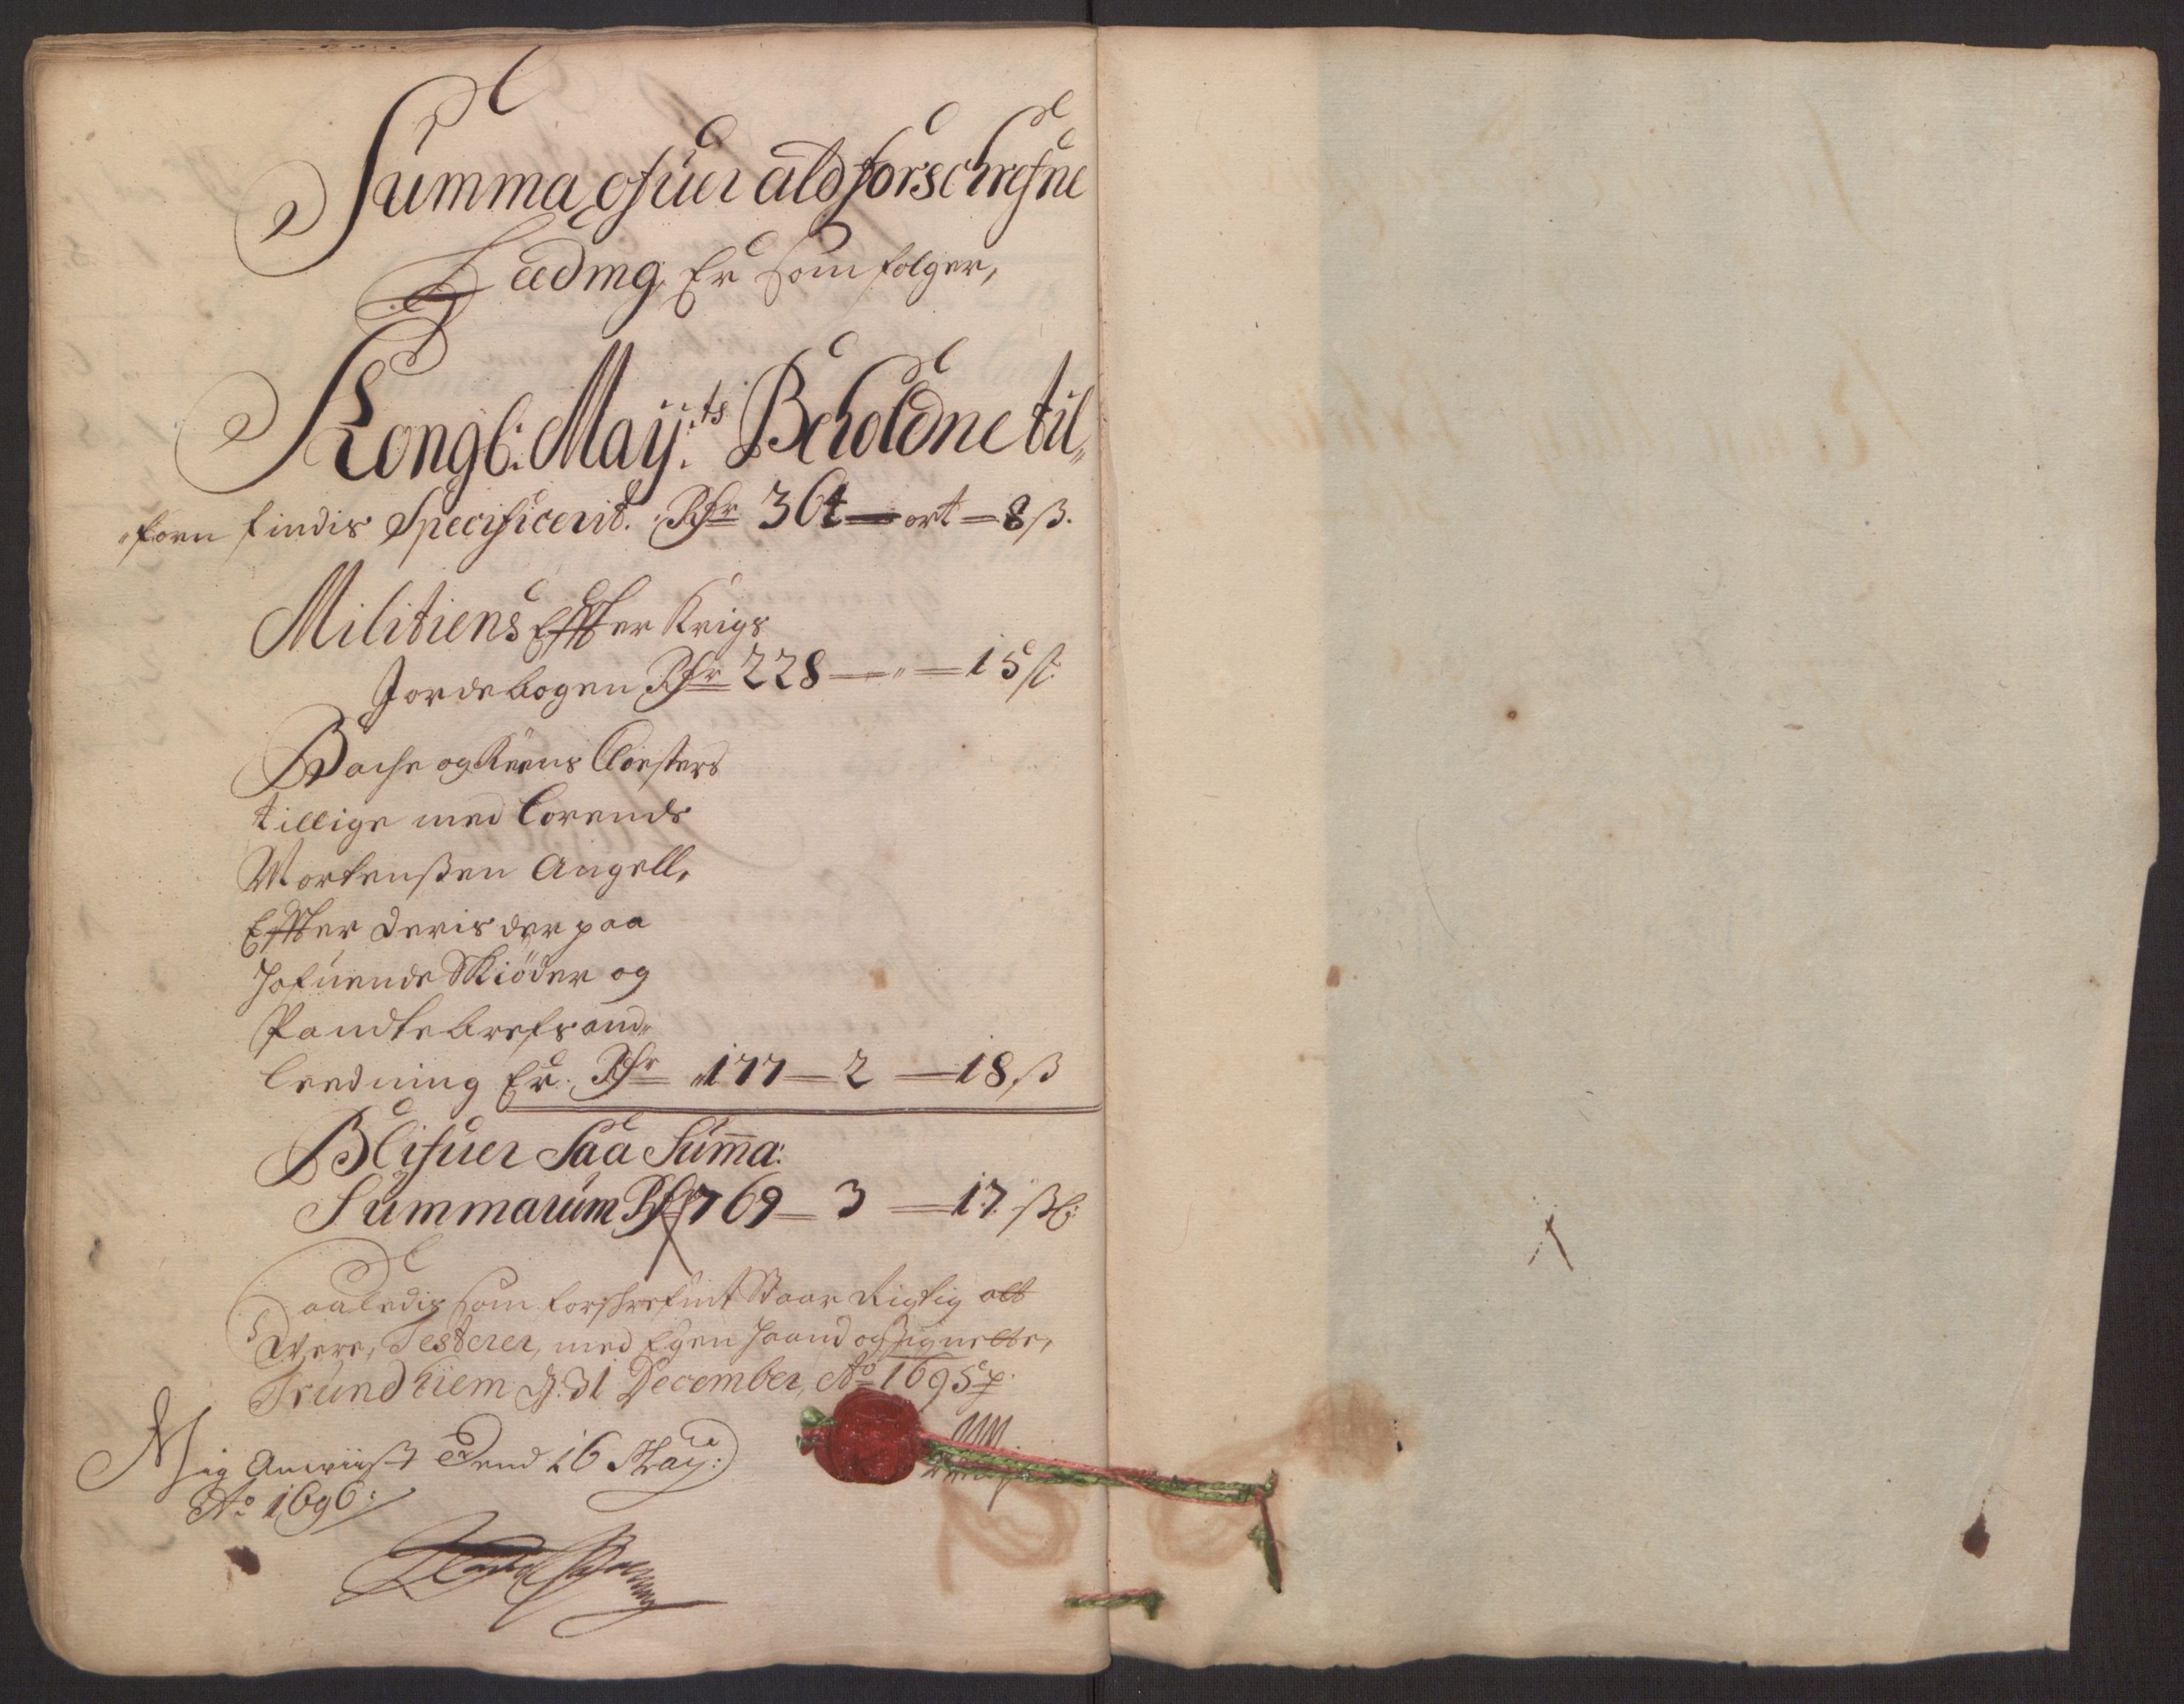 Summa ofuer ald forschrefne
Leding, Er som følger,
Kongl: Maÿ:ts Beholdne til„
„forn findis Specificerit. Rdr 364 — ort — 8 ß.
Militiens Effter Krigs
Jordebogen Rdr 228 — „ — 15 ß:
Bache og Reens Closters
tillige med Lorends
Mortenßen Angell,
Effter deris der paa
hafuende Skiöder og
Pandtebrefs and„
leedning Er. Rdr 177 — 2 — 18 ß
Blifuer Saa Summa:
Summarum Rdr 769 — 3 — 17 ßl:
Saaledis som forschrefuit Staar Rigtig att
Were, Testerer, med Egen haand og Signette,
Trundhiem d. 31 December, Ao 1695
Mig Anwiist Dend 16 Maÿ:
Ao 1696: